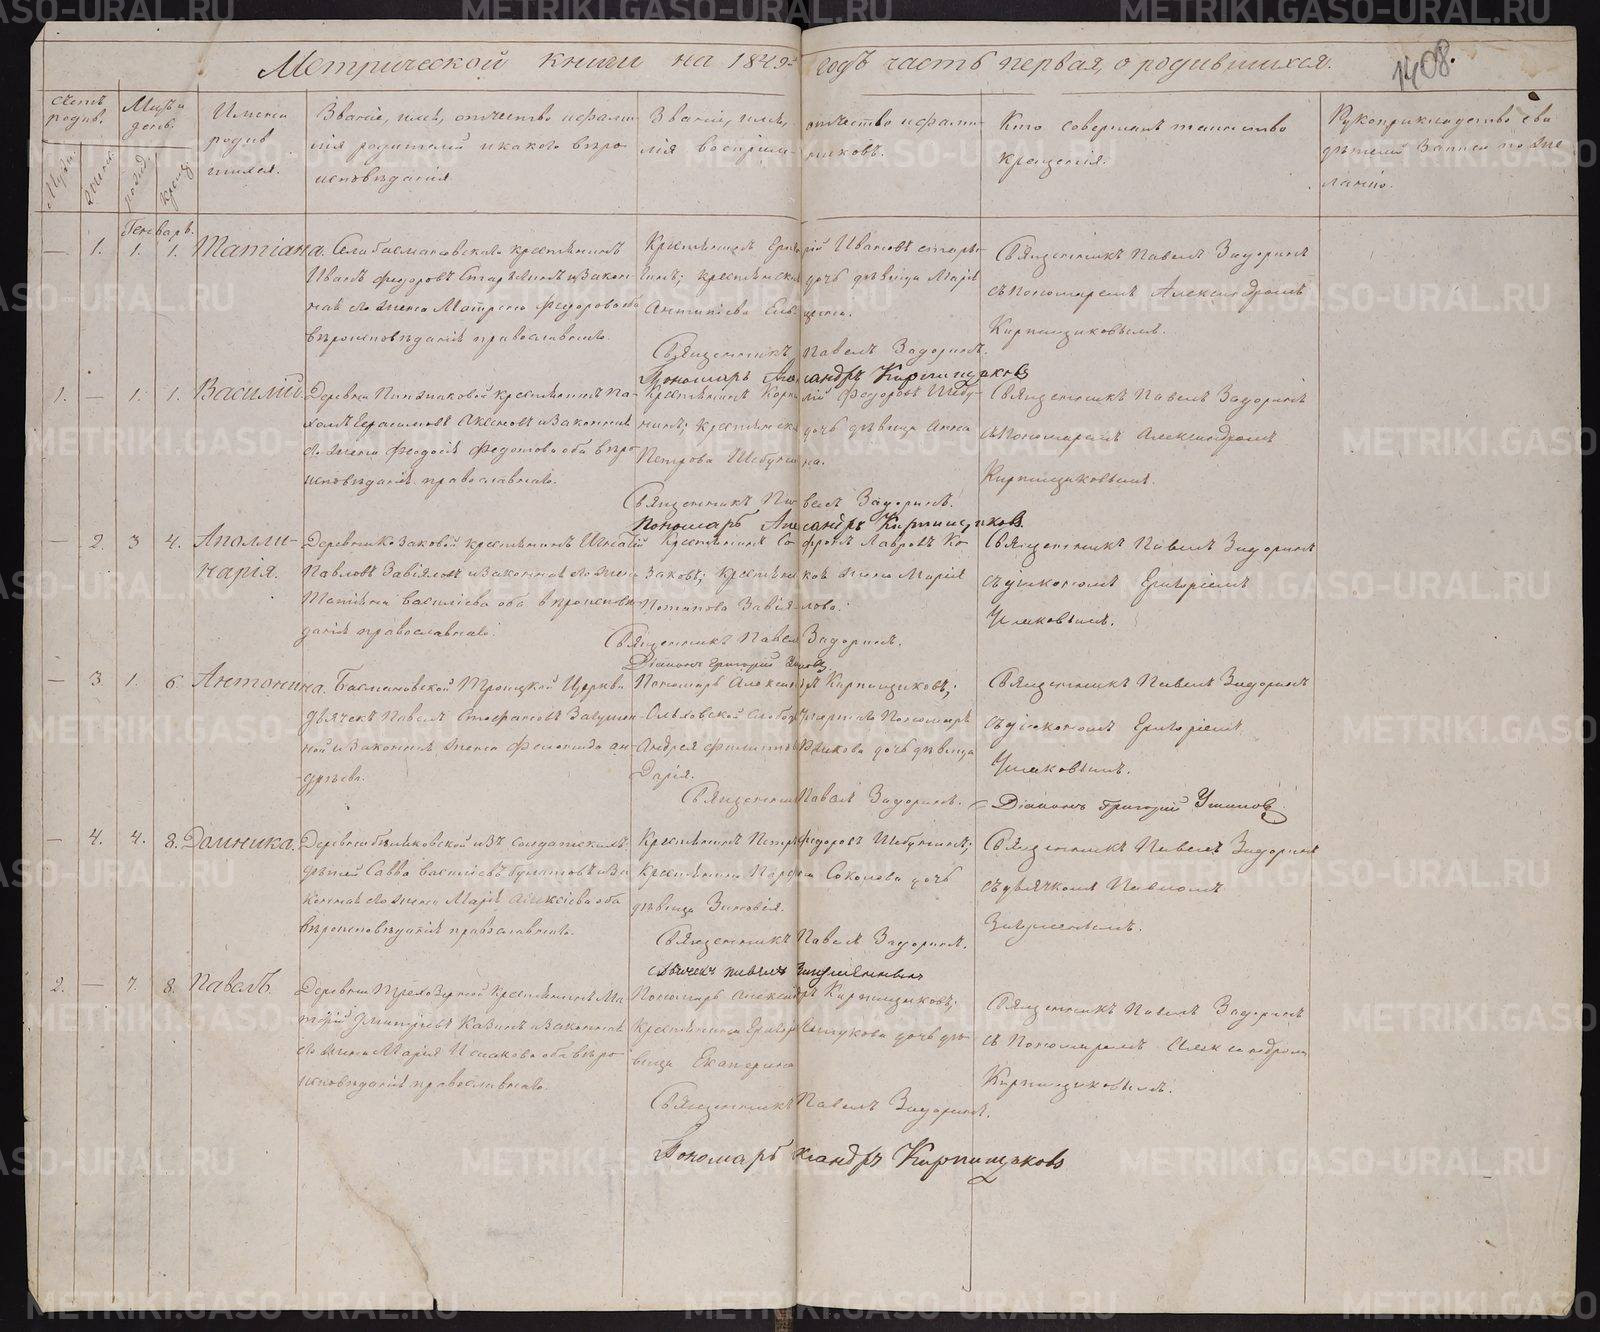 Метрической книги на 1849й годъ часть первая, о родившихся.
1408.
Счетъ родив.
Мужи
Женск
Мцъ и день.
рожд.
крещ.
Имена родившихся.
Званіе, имя, отчество и фамилія родителей и какого вѣроисповѣданія.
Званіе, имя, отчество и фамилія воспріемниковъ.
Кто совершалъ таинство крещенія.
Рукоприкладство свидѣтелей записи по желанію.
Генварь.
— 1. 1. 1. Татіана.
Села Басмановскаго крестьянинъ
Иванъ Федоровъ и закон-
ная его жена Матрена Федорова оба
вѣроисповѣданія православнаго.
Крестьянинъ Ивановъ
крестьянска дочь дѣвица Марія
Антипіева
Священникъ Павелъ Задоринъ
съ Пономаремъ Александромъ
Кирпищиковымъ.
Священникъ Павелъ Задоринъ.
Пономарь Александръ Кирпищиковъ
1. — 1. 1. Василій.
Деревни крестьянинъ Па-
Герасимовъ Аксеновъ и законная
его жена Феодосія Федотова оба вѣро-
исповѣданія православнаго.
Крестьянинъ Федоровъ Шебу-
нинъ; крестьянска дочь дѣвица Анна
Петрова Шебунина.
Священникъ Павелъ Задоринъ
съ Пономаремъ Александромъ
Кирпищиковымъ.
Священникъ Павелъ Задоринъ.
Пономарь Александръ Кирпищиковъ
— 2. 3 4. Аполли-
нарія.
Деревни Козаковой крестьянинъ Игнатій
Павловъ Завіяловъ и законная его жена
Татіана Василіева оба вѣроисповѣ-
данія православнаго.
Крестьянинъ Софронъ Лавровъ Ко-
заковъ; крестьянская жена Марія
Потапова Завіялова.
Священникъ Павелъ Задоринъ
съ діакономъ Григоріемъ
Ушаковымъ.
Священникъ Павелъ Задоринъ.
Діаконъ Григорій Ушаковъ.
— 3. 1. 6. Антонина.
Басмановской Троицкой Церкви
Дьячекъ Павелъ Стефановъ Задушин-
ной и законная жена Феоктиста Ан-
дреева.
Пономарь Александръ Кирпищиковъ;
Ольховской слободы умершаго Пономаря
Андрея Филипова дочь дѣвица
Дарія.
Священникъ Павелъ Задоринъ
съ діакономъ Григоріемъ
Ушаковымъ.
Священникъ Павелъ Задоринъ. Діаконъ Григорій Ушаковъ
— 4. 4. 8. Домника.
Деревни изъ солдатскихъ
дѣтей Савва Василіевъ и за-
конная его жена Марія Алексіева оба
вѣроисповѣданія православнаго.
Крестьянинъ Петръ Федоровъ Шебунинъ;
крестьянина Соколова дочь
дѣвица Зиновія.
Священникъ Павелъ Задоринъ
съ дьячкомъ Павломъ
Священникъ Павелъ Задоринъ.
Дьячекъ Павелъ
2. — 7. 8. Павелъ.
Деревни Трехозерной крестьянинъ Ма-
Дмитріевъ Казинъ и законная
его жена Марія Исакова оба вѣро-
исповѣданія православнаго.
Пономарь Александръ Кирпищиковъ;
крестьянина дочь дѣ-
вица Екатерина
Священникъ Павелъ Задоринъ
съ Пономаремъ Александромъ
Кирпищиковымъ.
Священникъ Павелъ Задоринъ.
Пономарь Александръ Кирпищиковъ
METRIKI.GASO-URAL.RU